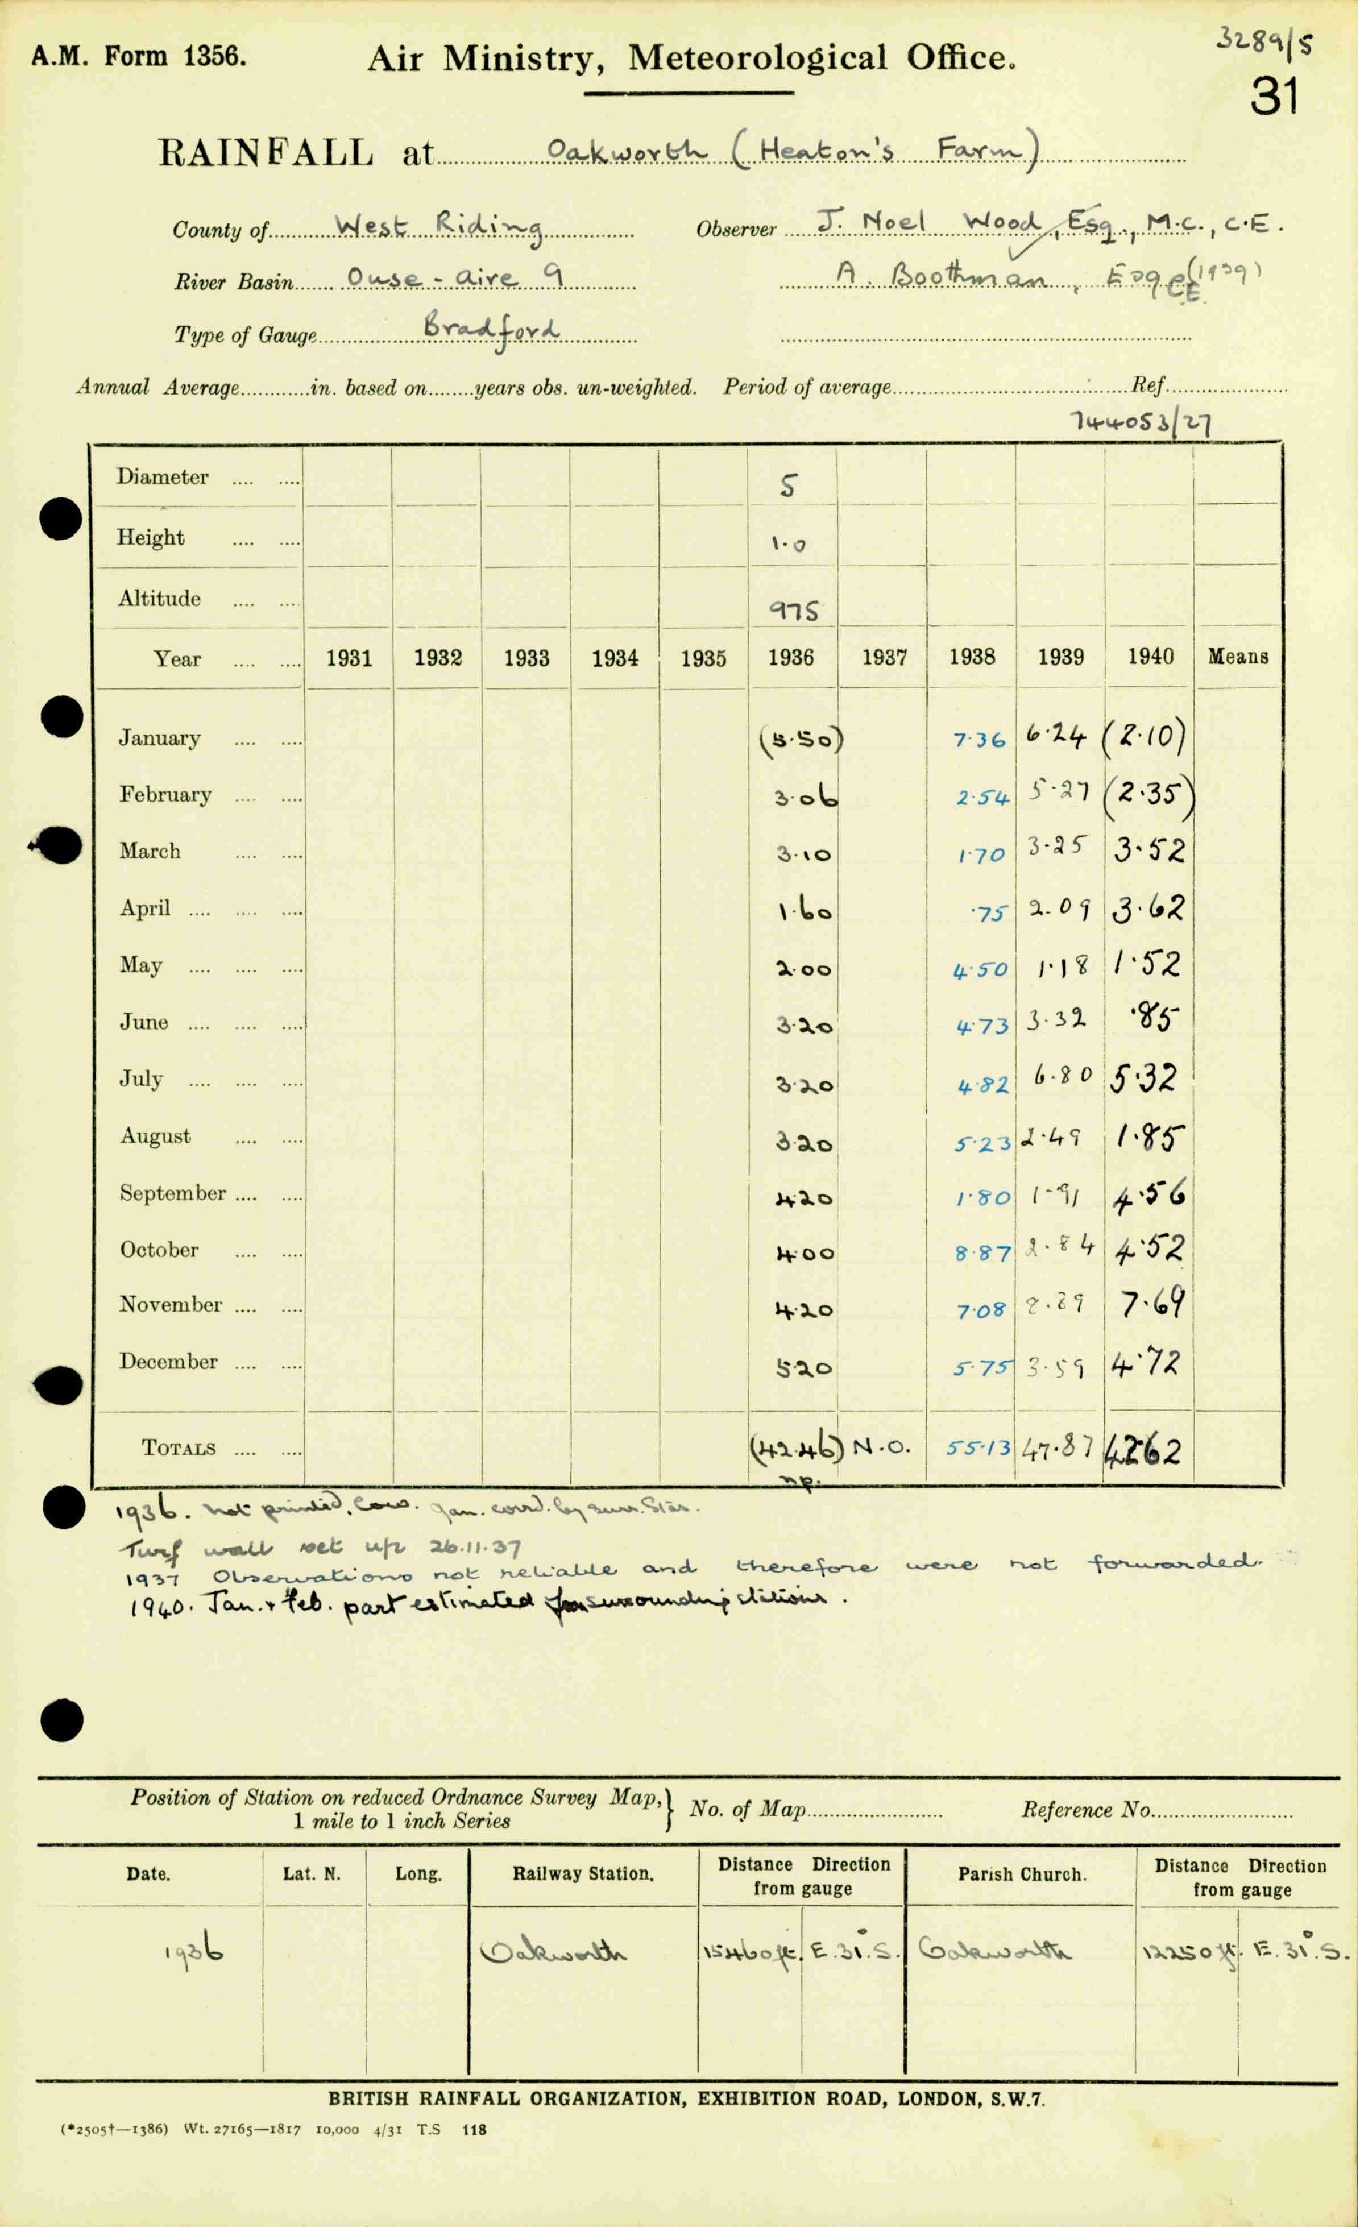 3289/5
A.M. Form 1356. Air Ministry, Meteorological Office.
31
RAINFALL at Oakworth (Heaton's Farm)
County of West Riding Observer J. Noel Wood, Esq., M.C., C.E.
River Basin Ouse - Aire 9 A. Boothman, Esq CE (1939)
Type of Gauge Bradford
Annual Average in. based on years obs. un-weighted. Period of average Ref.
744053/27
Diameter 5
Height 1.0
Altitude 975
Year 1931 1932 1933 1934 1935 1936 1937 1938 1939 1940 Means
January (5.50) 7.36 6.24 (2.10)
February 3.06 2.54 5.27 (2.35)
March 3.10 1.70 3.25 3.52
April 1.60 .75 2.09 3.62
May 2.00 4.50 1.18 1.52
June 3.20 4.73 3.32 .85
July 3.20 4.82 6.80 5.32
August 3.20 5.23 2.49 1.85
September 4.20 1.80 1.91 4.56
October 4.00 8.87 2.84 4.52
November 4.20 7.08 8.89 7.69
December 5.20 5.75 3.59 4.72
TOTALS (42.46) N.O. 55.13 47.87 42.62
n.p.
1936. Not printed, low. Jan. corrd. by surr. Stas.
Turf wall set up 26.11.37
1937 Observations not reliable and therefore were not forwarded.
1940. Jan. + Feb. part estimated from surrounding stations.
Position of Station on reduced Ordnance Survey Map,} No. of Map Reference No.
1 mile to 1 inch Series
Date. Lat. N. Long. Railway Station. Distance Direction from gauge Parish Church. Distance Direction from gauge
1936 Oakworth 15460 ft. E. 31°. S. Oakworth 12250 ft. E. 31°. S.
BRITISH RAINFALL ORGANIZATION, EXHIBITION ROAD, LONDON, S.W.7.
(*2505†—1386) Wt. 27165—1817 10,000 4/31 T.S 118